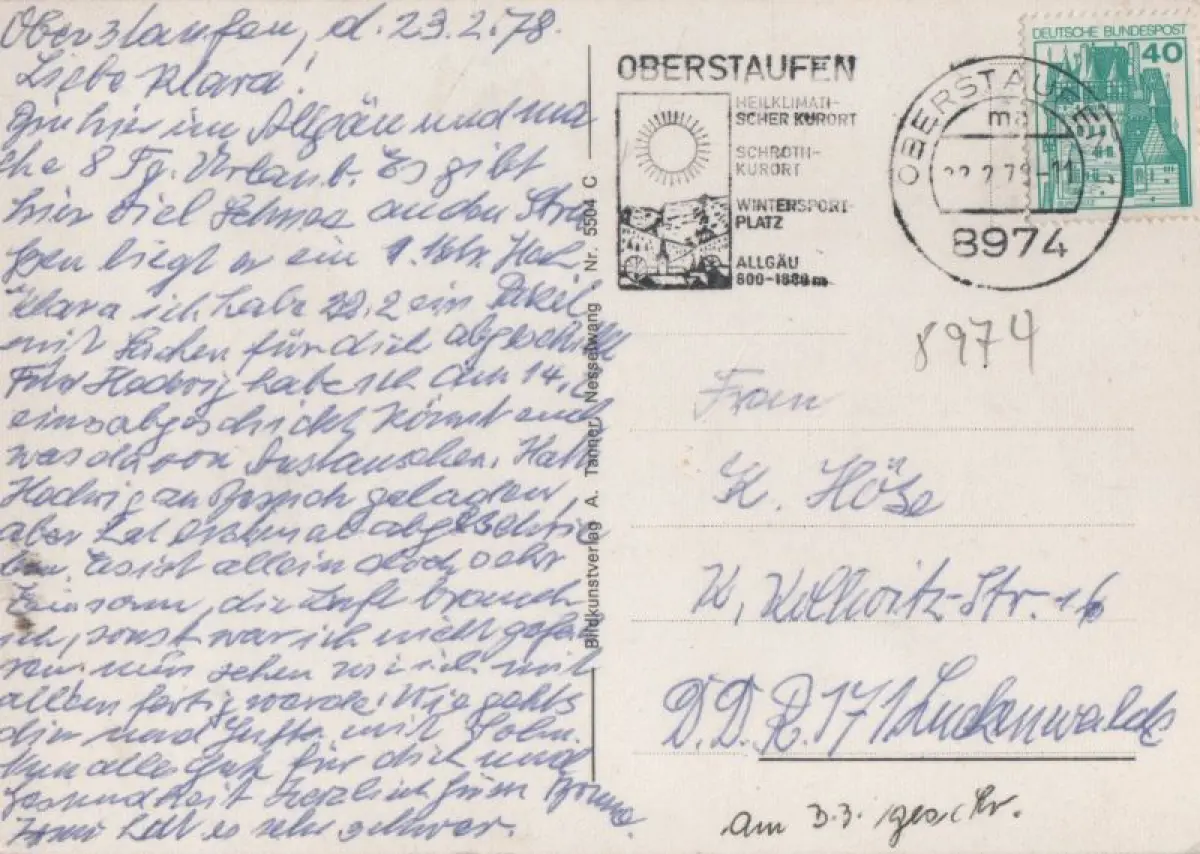 Oberstaufen, d. 23.2.78.
Liebe Klara!
Bin hier im Allgäu und ma
che 8 Tg. Urlaub. Es gibt
hier viel Schnee an den Stra
ßen liegt er ein 1 Mtr. Hoch
Klara ich habe 22.2 ein Paket
mit Sachen für dich abgeschickt
Für Hedwig habe ich am 14.2
eins abgeschickt Könnt euch
was davon Austauschen. Hatte
Hedwig zu Besuch geladen,
aber hat erstmal abgeschrie
ben. Es ist allein doch sehr
Einsam, die Luft brauch
ich, sonst war ich nicht gefah
ren. nun sehen wie ich mit
allem fertig werde! Wie gehts
dir und mit Sohn.
Nun alles Gute für dich und
Gesundheit Herzlich
es sehr schwer.
Bildkunstverlag A. Tanner Nesselwang Nr. 5504 C
OBERSTAUFEN
HEILKLIMATI-
SCHER KURORT
SCHROTH-
KURORT
WINTERSPORT-
PLATZ
ALLGÄU
800-1800m
OBERSTAUFEN
ma
-11
8974
DEUTSCHE BUNDESPOST
40
8974
Frau
K. Höse
K. Kollwitz-Str. 16
D.D.R. 171 Luckenwalde
am 3.3. geschr.